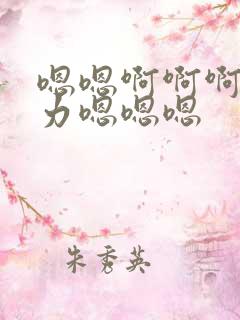 嗯嗯啊啊啊
力嗯嗯嗯
朱秀英